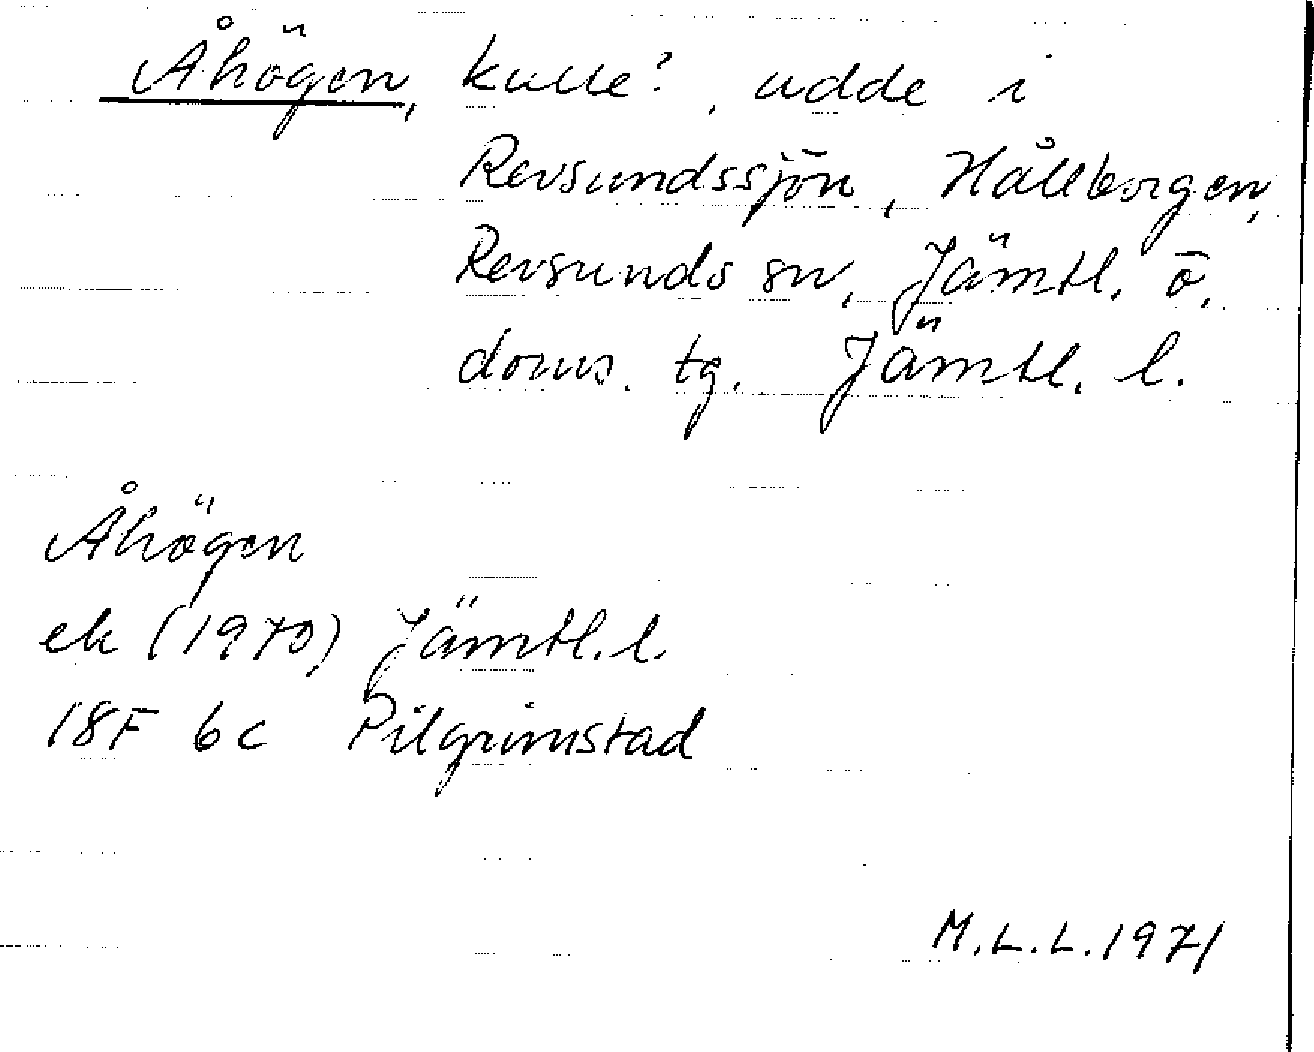 Åhögen, kulle?, udde i
Revsundssjön, Hållborgen,
Revsunds sn, Jämtl. ö.
doms. tg. Jämtl. l.
Åhögen
ek (1970) Jämtl. l.
18F 6c Pilgrimstad
M.L.L. 1971